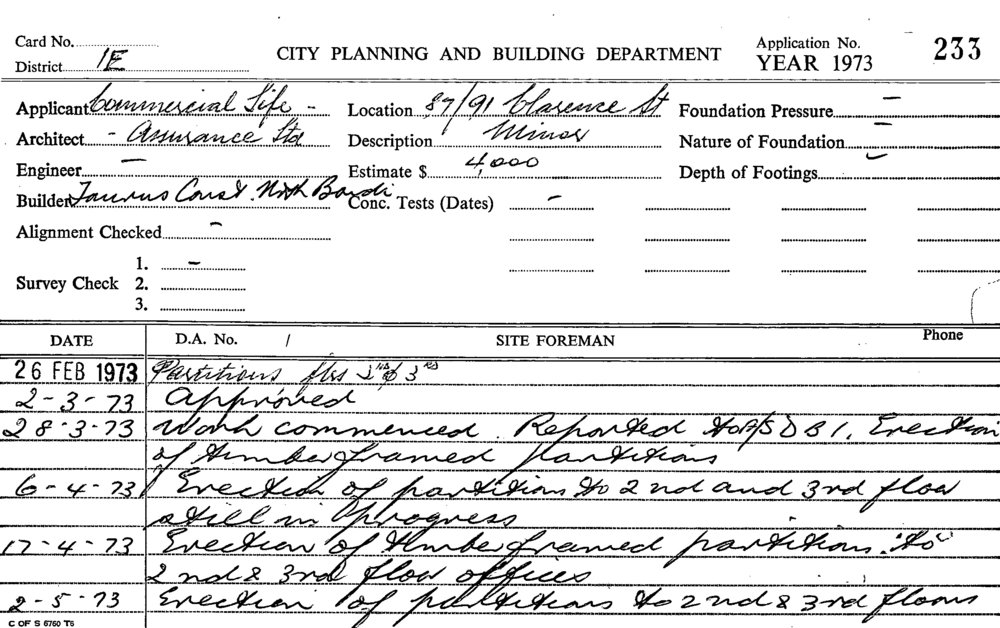 Card No.
District 1E
CITY PLANNING AND BUILDING DEPARTMENT
Application No. 233
YEAR 1973
Applicant Commercial Life -
Architect - Assurance Ltd
Engineer —
Builder Taurus Const. Nth Bondi
Alignment Checked —
Survey Check 1. —
2.
3.
Location 87/91 Clarence St
Description Minor
Estimate $ 4,000
Conc. Tests (Dates) —
Foundation Pressure —
Nature of Foundation —
Depth of Footings
DATE D.A. No. / SITE FOREMAN Phone
26 FEB 1973 Partitions flrs 2nd & 3rd
2-3-73 Approved
28-3-73 Work commenced. Reported to A/SDB1. Erection
of timber framed partitions
6-4-73 Erection of partitions to 2nd and 3rd floor
still in progress
17-4-73 Erection of timber framed partitions to
2nd & 3rd floor offices
2-5-73 Erection of partitions to 2nd & 3rd floors
C OF S 6760 T5